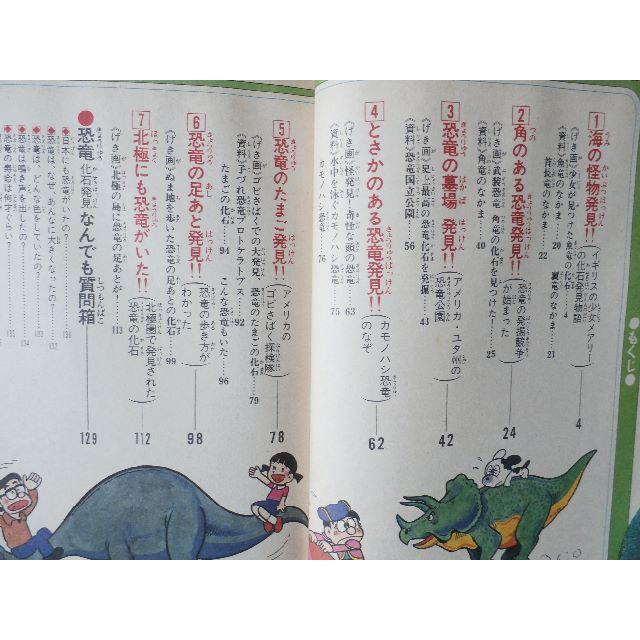 ●もくじ●
1 海の怪物発見!!
イギリスの少女メアリーの化石発見物語
4
《げき画》少女が見つけた魚竜の化石 4
《資料》魚竜のなかま 20
翼竜のなかま 21
首長竜のなかま 22
2 角のある恐竜発見!!
恐竜の発掘競争が始まった
24
《げき画》武装恐竜 角竜の化石を発見! 25
《資料》角竜のなかま 40
3 恐竜の墓場 発見!!
アメリカ・ユタ州の恐竜公園
42
《げき画》史上最高の恐竜化石を発掘 43
《資料》恐竜国立公園 56
4 とさかのある恐竜発見!!
カモノハシ恐竜のなぞ
62
《げき画》怪発見! 奇怪な頭の恐竜 63
《資料》水中を泳ぐカモノハシ恐竜 75
カモノハシ恐竜 76
5 恐竜のたまご発見!!
アメリカのゴビさばく探検隊
78
《げき画》ゴビさばくでの大発見 恐竜のたまごの化石 79
《資料》子づれ恐竜プロトケラトプス 92
たまごの化石 94
こんな恐竜もいた 96
6 恐竜の足あと発見!!
恐竜の歩き方がわかった
98
《げき画》ぬま地を歩いた恐竜の足あとの化石 99
7 北極にも恐竜がいた!!
北極圏で発見された恐竜の化石
112
《げき画》北極の島に恐竜の足あとが! 113
●恐竜 化石発見 なんでも質問箱
129
◆日本にも恐竜がいたの?
◆恐竜は、なぜ、あんなに大きくなったの?
◆恐竜は、どんな色をしていたの?
◆恐竜は鳴き声を出したの?
◆恐竜の寿命は何才ぐらい?